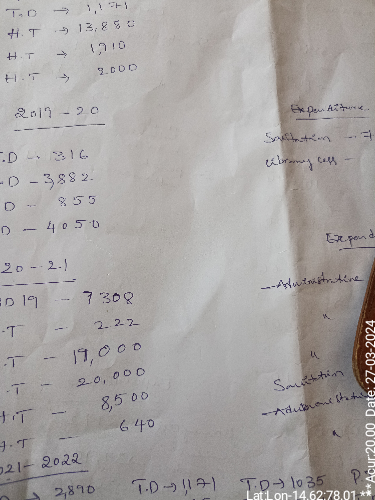 T.D → 1,171
H.T → 13,880
H.T → 1,910
H.T → 2000
2019-20
Expenditure
.D - 316
Sanitation -
D - 3,882
Library cess -
D - 855
D - 4050
20-21
19 - 7308
- Administrative
.T - 222
"
.T - 19,000
"
.T - 20,000
Sanitation
H.T - 8,500
H.T - 640
"
021-2022
→ 2,890 T.D → 1171 T.D → 1035 P.
Lat Lon-14.62:78.01 *** Acur:20.00 Date: 27-03-2024